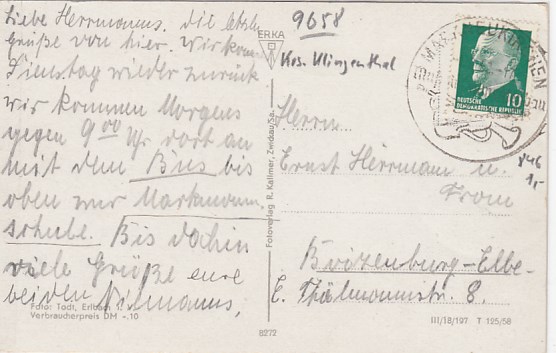 Liebe Herrmanns. Die letzten
Grüße von hier. Wir kom
Dienstag wieder zurück
wir kommen Morgens
gegen 9 00 Uhr dort an
mit dem Bus bis
oben nur Markmann.
schule. Bis dahin
viele Grüße eure
beiden
Foto: Todt, Erlbach i. V.
Verbraucherpreis DM -.10
ERKA
Fotoverlag R. Kallmer, Zwickau/Sa.
8272
9658
Kos. Klingenthal
MARKNEUKIRCHEN
10
DEUTSCHE
DEMOKRATISCHE REPUBLIK
Herrn
Ernst Herrmann u.
Frau
Boizenburg-Elbe
E. Thälmannstr. 8.
846
1,-
III/18/197 T 125/58